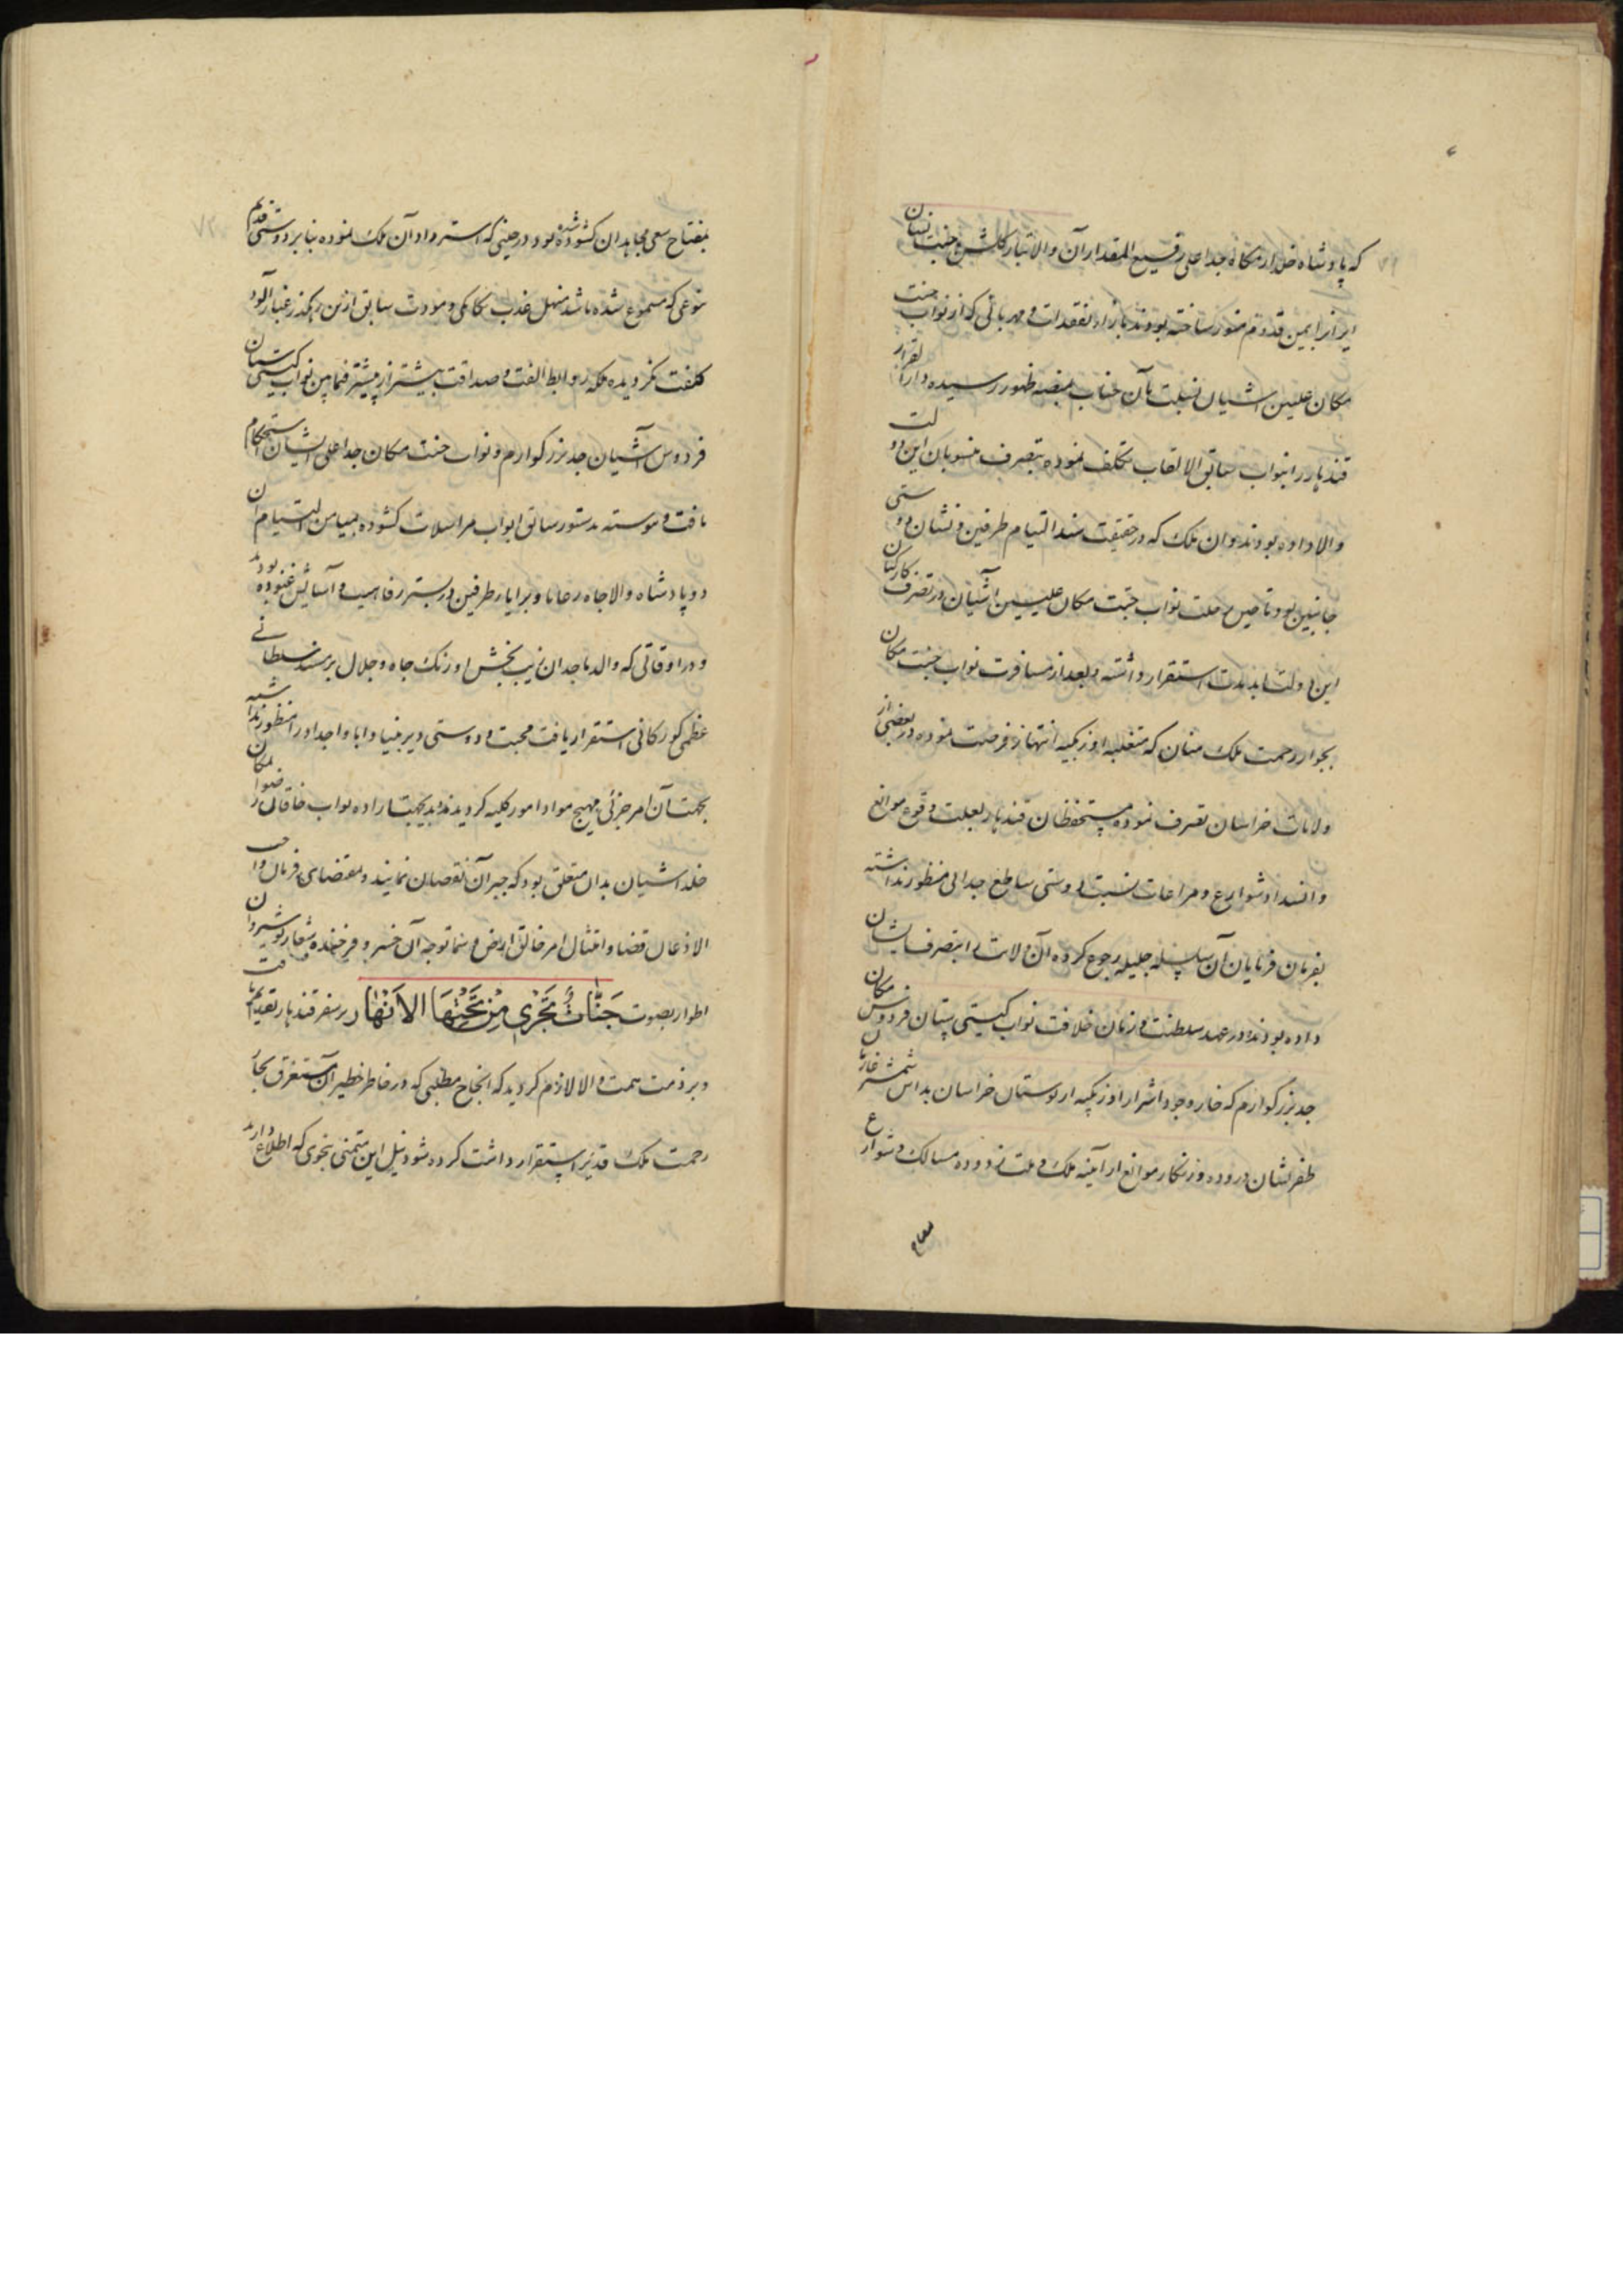 که پادشاه خلد آرامگاه جد اعلی رفیع المقدار آن والاتبار گلشن جنت نشان
ایران را بیمن قدوم منور ساخته بودند بازاء تفقدات و مهربانی که از نواب جنت
مکان علیین آشیان نسبت بآن جناب بمنصه ظهور رسیده دار القرار
قندهار را بنواب سابق الالقاب تکلف نموده بتصرف منسوبان این دولت
والا داده بودند و ان ملک که در حقیقت سند التیام طرفین و نشان دوستی
جانبین بود تا حین رحلت نواب جنت مکان علیین آشیان در تصرف کارکنان
این دولت ابد مدت استقرار داشته و بعد از مسافرت نواب جنت مکان
بجوار رحمت ملک منان که متغلبه اوزبکیه انتهاز فرصت نموده در بعضی از
ولایات خراسان تصرف نموده مستحفظان قندهار بعلت وقوع موانع
و انسداد شوارع و مراعات نسبت دوستی ساطع جدائی منظور نداشته
بفرمان فرمایان آن سلسله جلیله رجوع کرده آن ولایت را بتصرف ایشان
داده بودند و در عهد سلطنت و زمان خلافت نواب گیتی ستان فردوس مکان
جد بزرگوارم که خار وجود اشرار اوزبکیه از بوستان خراسان بداس شمشیر غازیان
ظفر نشان دروده و زنگار موانع از آینه ملک و ملت زدوده مسالک و شوارع
بمفتاح سعی مجاهدان گشوده شده بود در حینی که استرداد آن ملک نموده بنابر دوستی قدیم
نوعی که مسموع شده باشد منهل عذب یکانکی و مودت سابق ازین رهگذر غبار آلود
کلفت نگردیده بلکه روابط الفت و صداقت بیشتر از پیشتر فیمابین نواب گیتی ستان
فردوس آشیان جد بزرگوارم و نواب جنت مکان جد اعلی ایشان استحکام
یافت و پیوسته بدستور سابق ابواب مراسلات گشوده بمیامن التیام آن
دو پادشاه والا جاه رعایا و برایاء طرفین در بستر رفاهیت و آسایش غنوده بودند
و در اوقاتی که والد ماجد ان زیب بخش اورنک جاه و جلال بر مسند سلطانی
عظمی گورکانی استقرار یافت محبت و دوستی دیر بنیاد ابا و اجداد را منظور نداشته
بجهت آن امر جزئی مهیج مواد امور کلیه گردیدند بدینجهت اراده نواب خاقان رضوان مکان
خلد آشیان بدان متعلق بود که جبر آن نقصان نمایند و بمقتضای فرمان واجب
الاذعان قضا و امتثال امر خالق ارض و سما توجه آن خسرو فرخنده شعار نوشیروان
اطوار بصوت جَنَّاتٌ تَجْرِي مِنْ تَحْتِهَا الأَنْهَار بر سفر قندهار تقدیم یافت
و بر ذمت همت والا لازم گردید که انجاح مطلبی که در خاطر خطیر آن مستغرق بحار
رحمت ملک قدیر استقرار داشت کرده شود نیل این متمنی بنحوی که اطلاع دارند